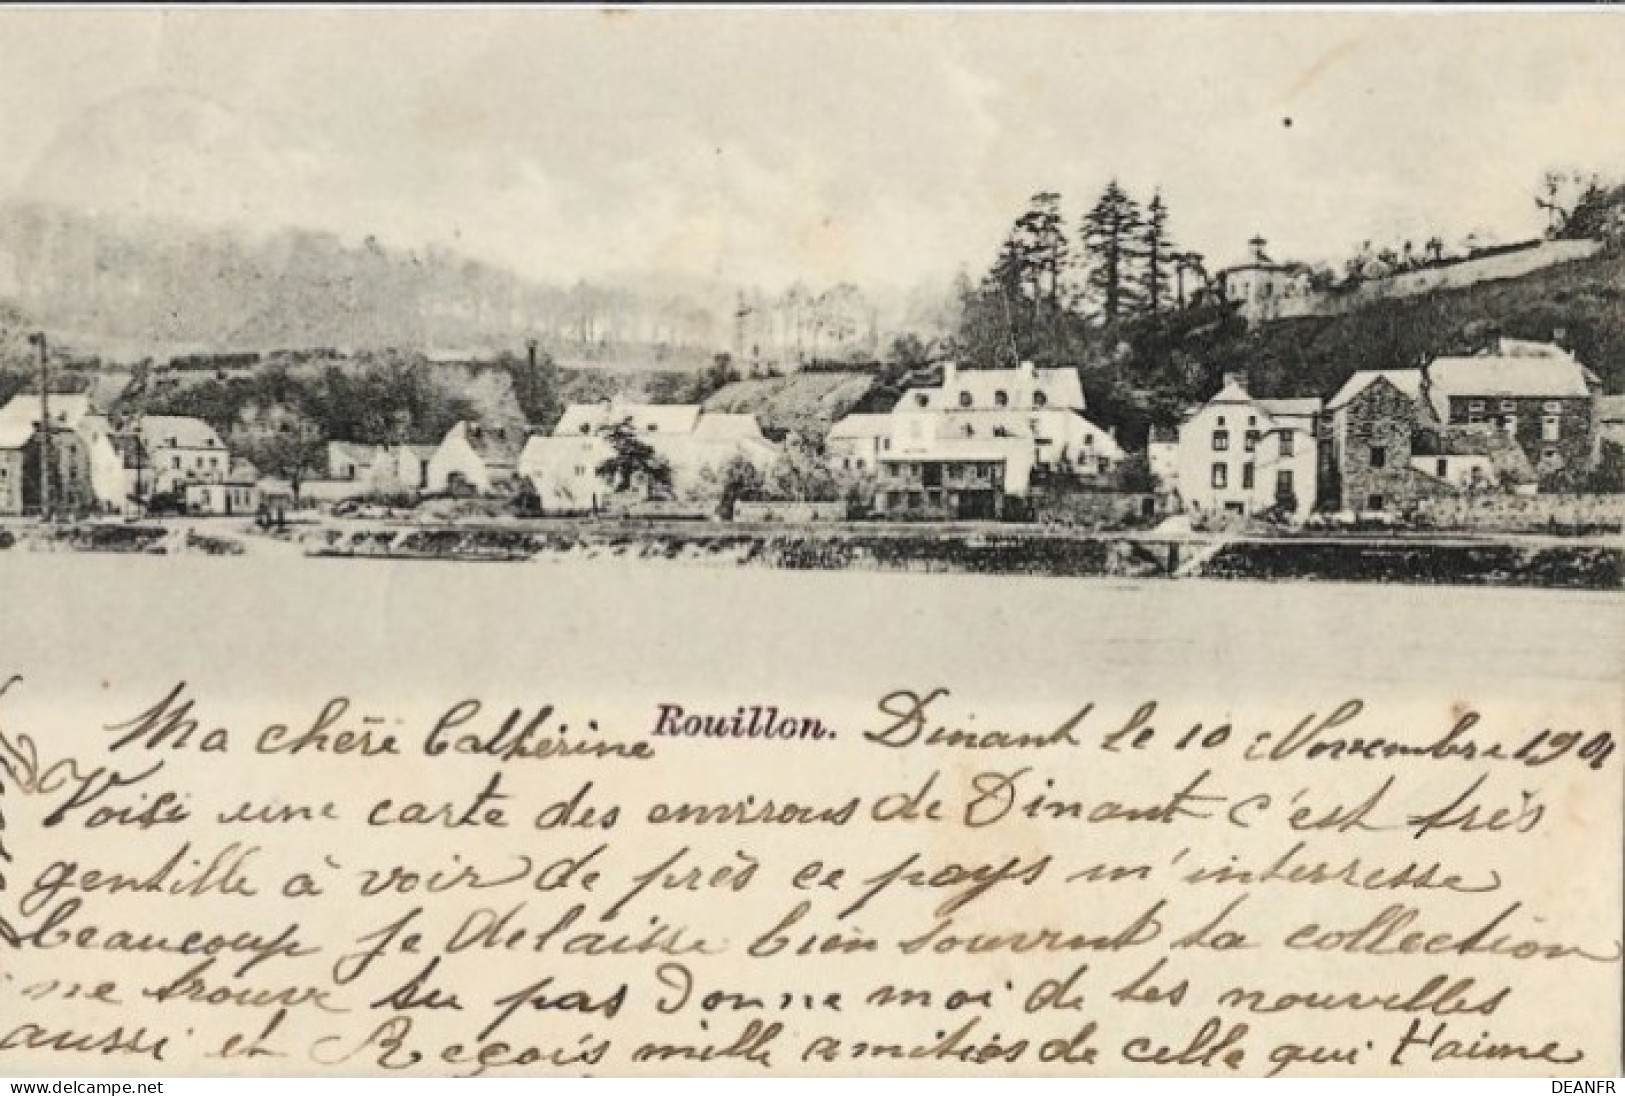 Ma chère Cathérine Rouillon. Dinant le 10 Novembre 1901
Voisi une carte des environs de Dinant c'est très
gentille à voir de près ce pays m'interresse
beaucoup je delaisse bien souvent ta collection
ne trouve tu pas Donne moi de tes nouvelles
aussi et Reçois mille amitiés de celle qui t'aime
www.delcampe.net
DEANFR